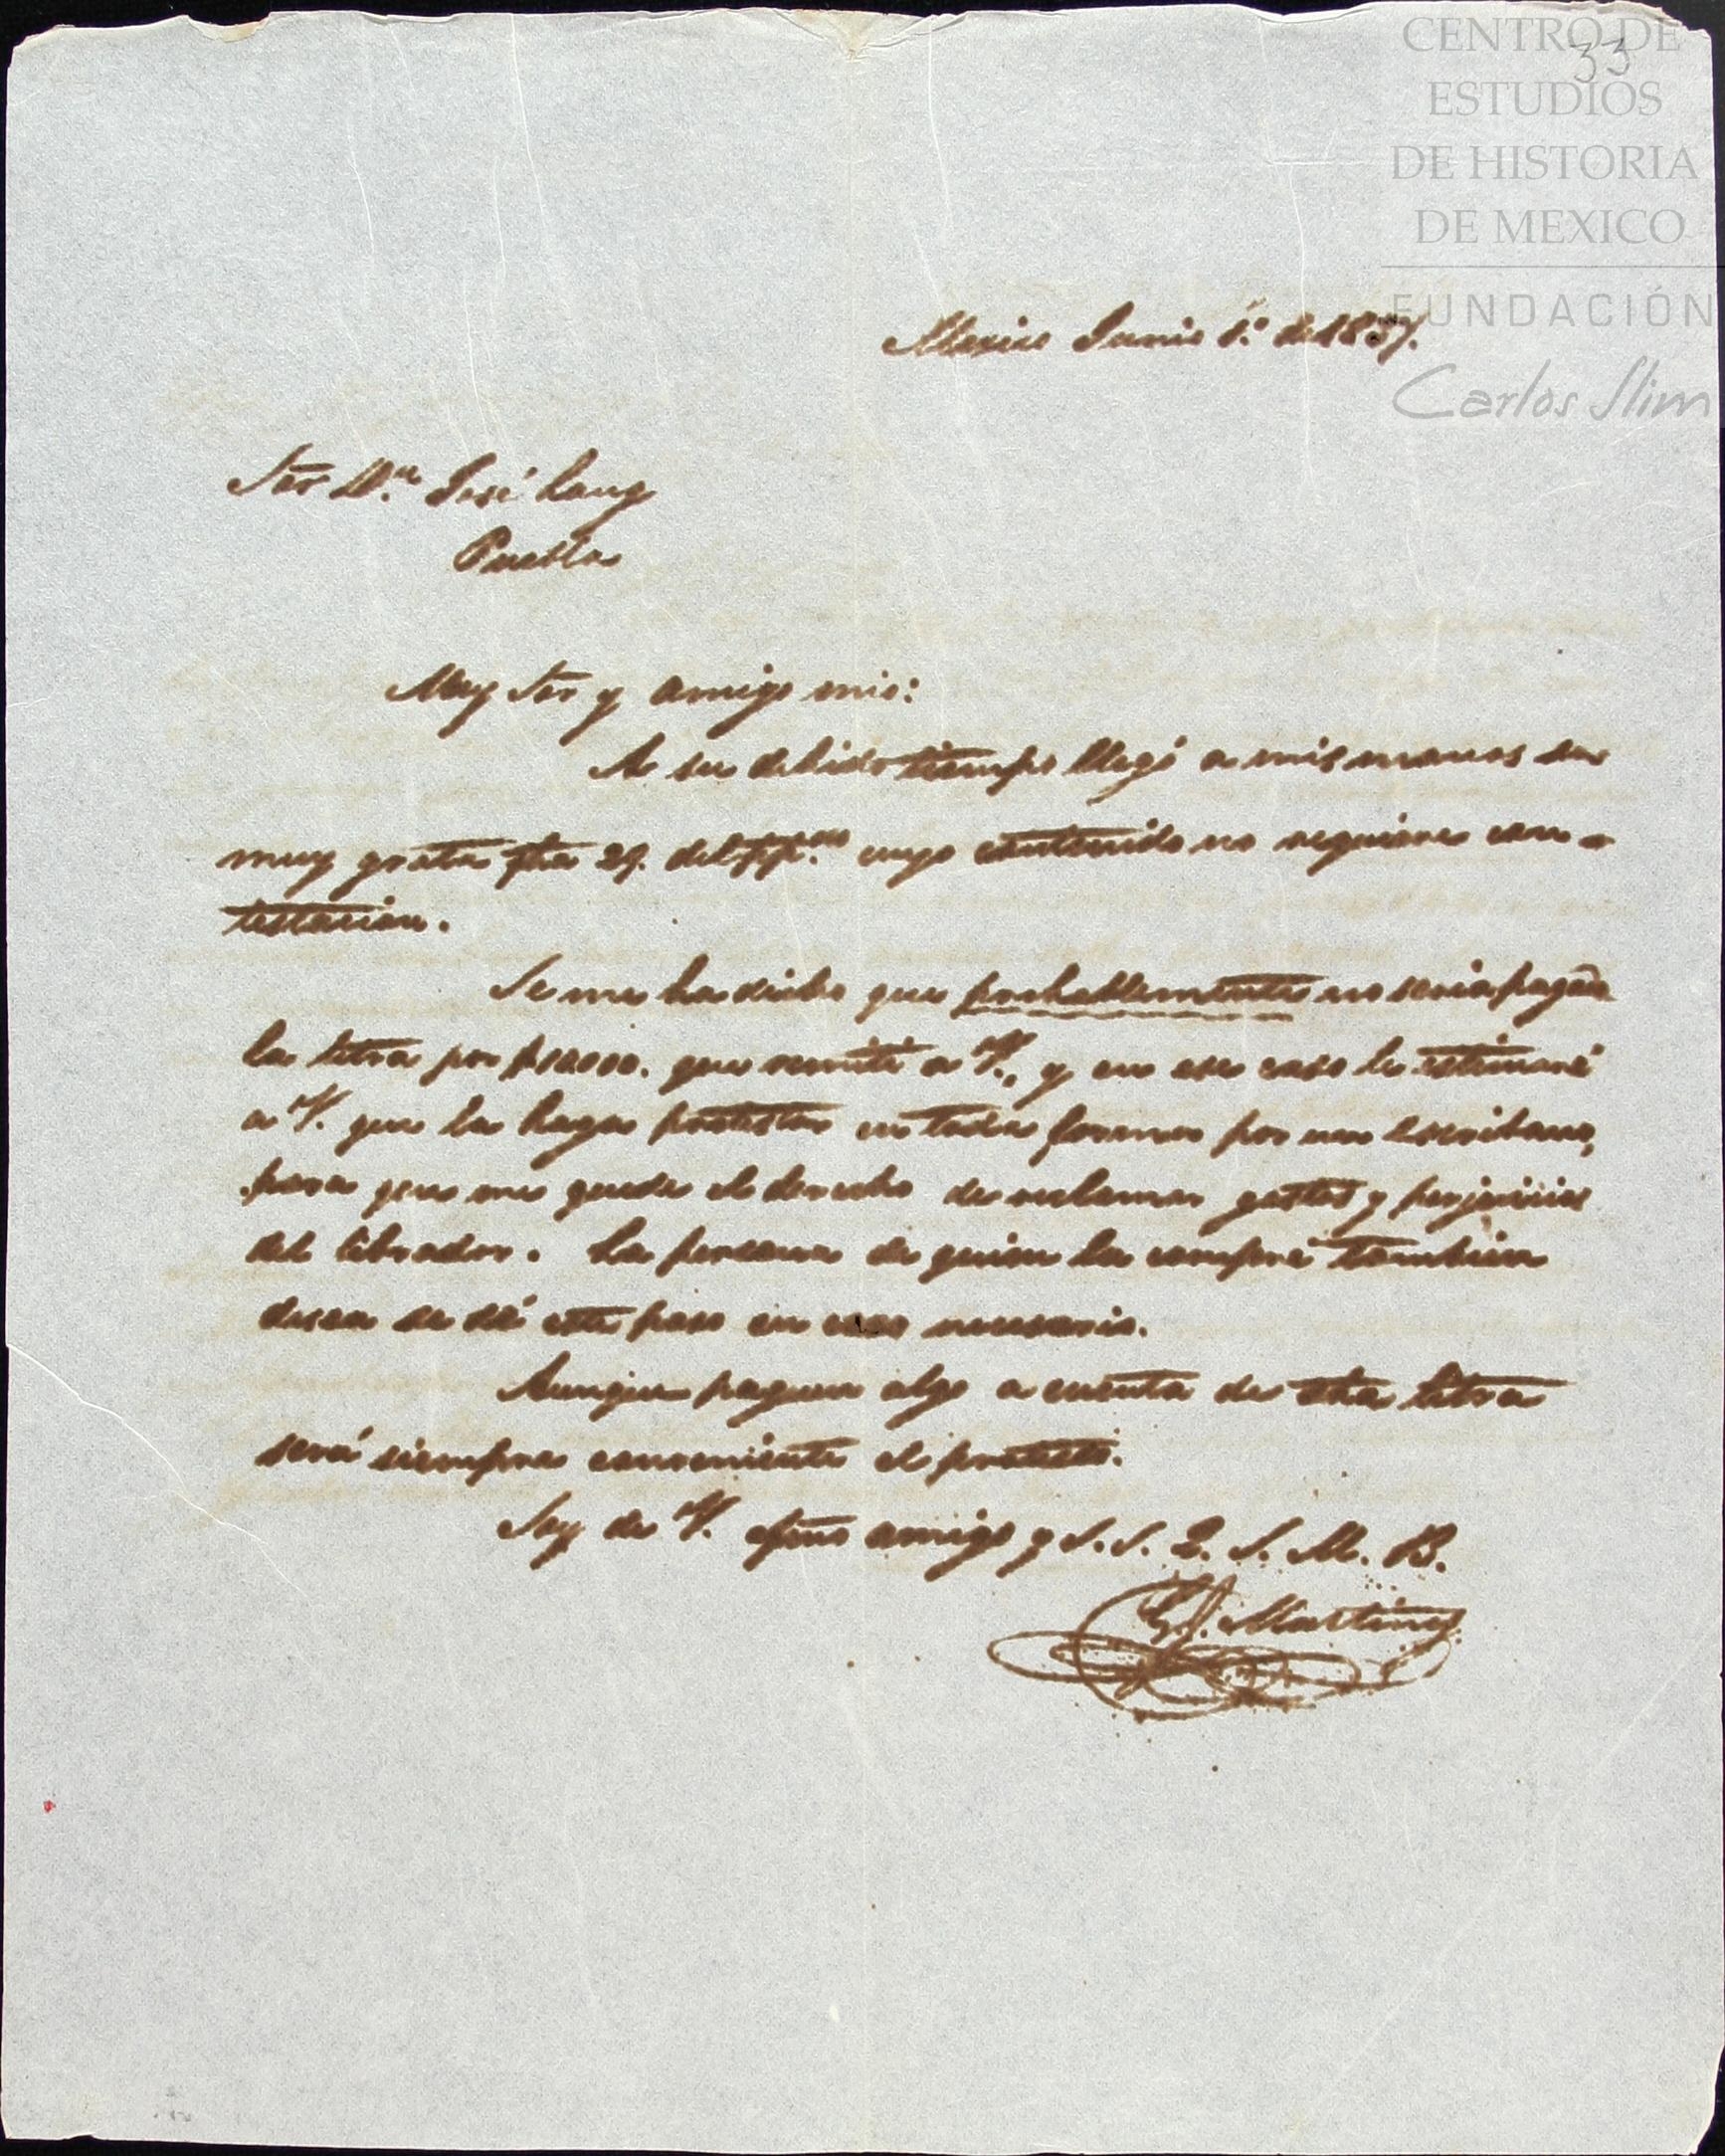 CENTRO DE
33
ESTUDIOS
DE HISTORIA
DE MEXICO
FUNDACIÓN
Carlos Slim
Mexico Junio 1.º de 1857.
Sor D.n José Lang
Puebla
Muy Sor y amigo mio:
A su debido tiempo llegó a mis manos su
muy grata fha 29. del pp.do cuyo contenido no requiere con-
testacion.
Se me ha dicho que probablemente no seria pagada
la letra por $12000. que remití a V., y en ese caso le estimaré
a V. que la haga protestar en toda forma por un escribano,
para que me quede el derecho de reclamar gastos y perjuicios
del librador. La persona de quien la compré tambien
desea se dé este paso en caso necesario.
Aunque paguen algo a cuenta de dha letra
será siempre conveniente el protesto.
Soy de V. afmo amigo y S. S. Q. S. M. B.
Martinez